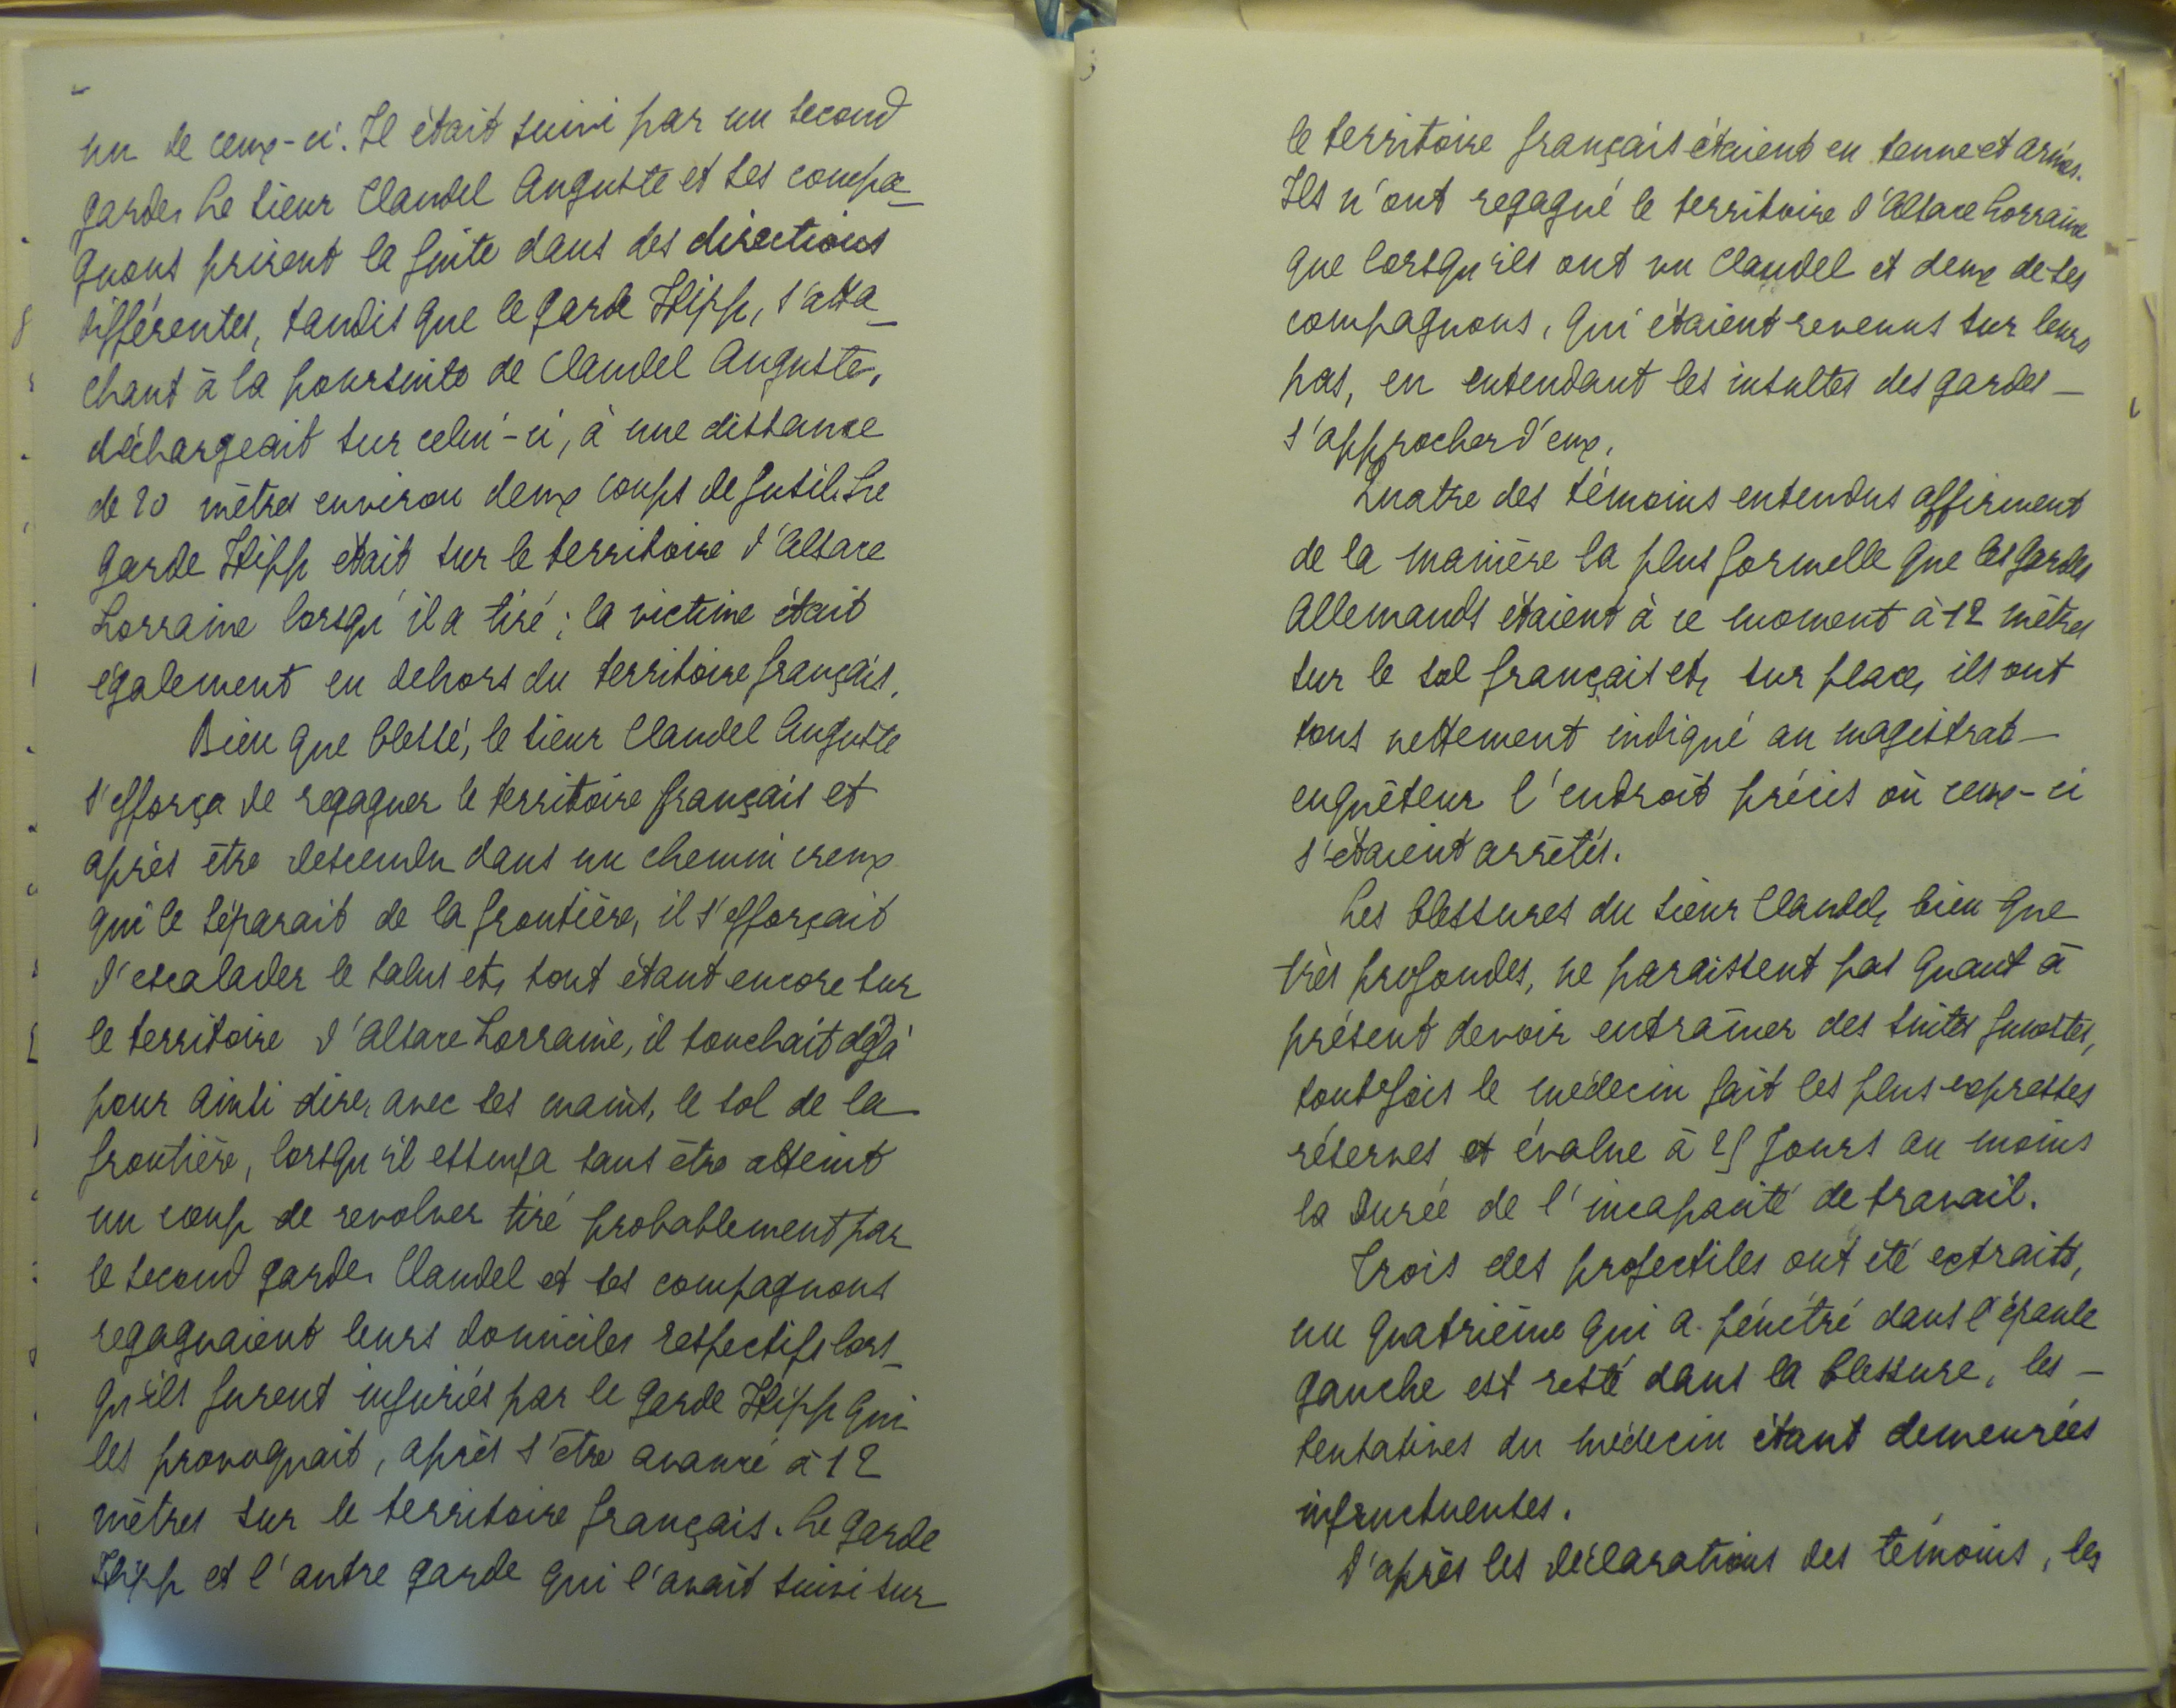 un de ceux-ci. Il était suivi par un second
garde. Le sieur Claudel Auguste et ses compa_
gnons prirent la fuite dans des directions
différentes, tandis que le garde Hipp, s'atta_
chant à la poursuite de Claudel Auguste,
déchargeait sur celui-ci, à une distance
de 20 mètres environ deux coups de fusil. Le
garde Hipp était sur le territoire d'Alsace
Lorraine lorsqu'il a tiré ; la victime était
également en dehors du territoire français.
Bien que blessé, le sieur Claudel Auguste
s'efforça de regagner le territoire français et
après être descendu dans un chemin creux
qui le séparait de la frontière, il s'efforçait
d'escalader le talus et, tout étant encore sur
le territoire d'Alsace Lorraine, il touchait déjà
pour ainsi dire, avec ses mains, le sol de la
frontière, lorsqu'il essuya sans être atteint
un coup de revolver tiré probablement par
le second garde. Claudel et ses compagnons
regagnaient leurs domiciles respectifs lors_
qu'ils furent injuriés par le garde Hipp qui
les provoquait, après s'être avancé à 12
mètres sur le territoire français. Le garde
Hipp et l'autre garde qui l'avait suivi sur
le territoire français étaient en tenue et armés.
Ils n'ont regagné le territoire d'Alsace Lorraine
que lorsqu'ils ont vu Claudel et deux de ses
compagnons, qui étaient revenus sur leurs
pas, en entendant les insultes des gardes _
s'approcher d'eux.
Quatre des témoins entendus affirment
de la manière la plus formelle que les gardes
Allemands étaient à ce moment à 12 mètres
sur le sol français et, sur place, ils ont
tous nettement indiqué au magistrat _
enquêteur l'endroit précis où ceux-ci
s'étaient arrêtés.
Les blessures du sieur Claudel, bien que
très profondes, ne paraissent pas quant à
présent devoir entraîner des suites funestes,
toutefois le médecin fait les plus expresses
réserves et évalue à 25 jours au moins
la durée de l'incapacité de travail.
Trois des projectiles ont été extraits,
un quatrième qui a pénétré dans l'épaule
gauche est resté dans la blessure, les _
tentatives du médecin étant demeurées
infructueuses.
D'après les déclarations des témoins, les